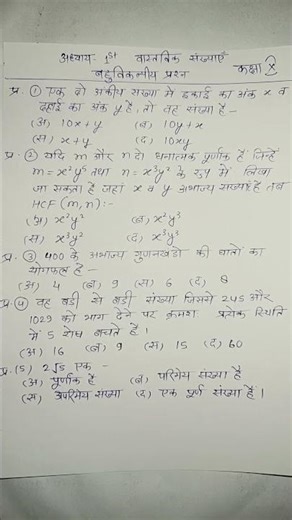 अध्याय- 1st वास्तविक संख्याएँ
बहुविकल्पीय प्रश्न कक्षा X
प्र. (1) एक दो अंकीय संख्या में इकाई का अंक x व
दहाई का अंक y है, तो वह संख्या है -
(अ) 10x+y (ब) 10y+x
(स) x+y (द) 10xy
प्र. (2) यदि m और n दो धनात्मक पूर्णांक हैं जिन्हें
m = x²y⁵ तथा n = x³y² के रूप में लिखा
जा सकता है जहां x व y अभाज्य संख्याएँ हैं तब
HCF (m, n) :-
(अ) x²y² (ब) x²y³
(स) x³y² (द) x³y³
प्र. (3) 400 के अभाज्य गुणनखंडो की घातों का
योगफल है -
(अ) 4 (ब) 9 (स) 6 (द) 8
प्र. (4) वह बड़ी से बड़ी संख्या जिससे 245 और
1029 को भाग देने पर क्रमशः प्रत्येक स्थिति
में 5 शेष बचते हैं।
(अ) 16 (ब) 9 (स) 15 (द) 60
प्र. (5) 2√5 एक -
(अ) पूर्णांक है (ब) परिमेय संख्या है
(स) अपरिमेय संख्या (द) एक पूर्ण संख्या है।